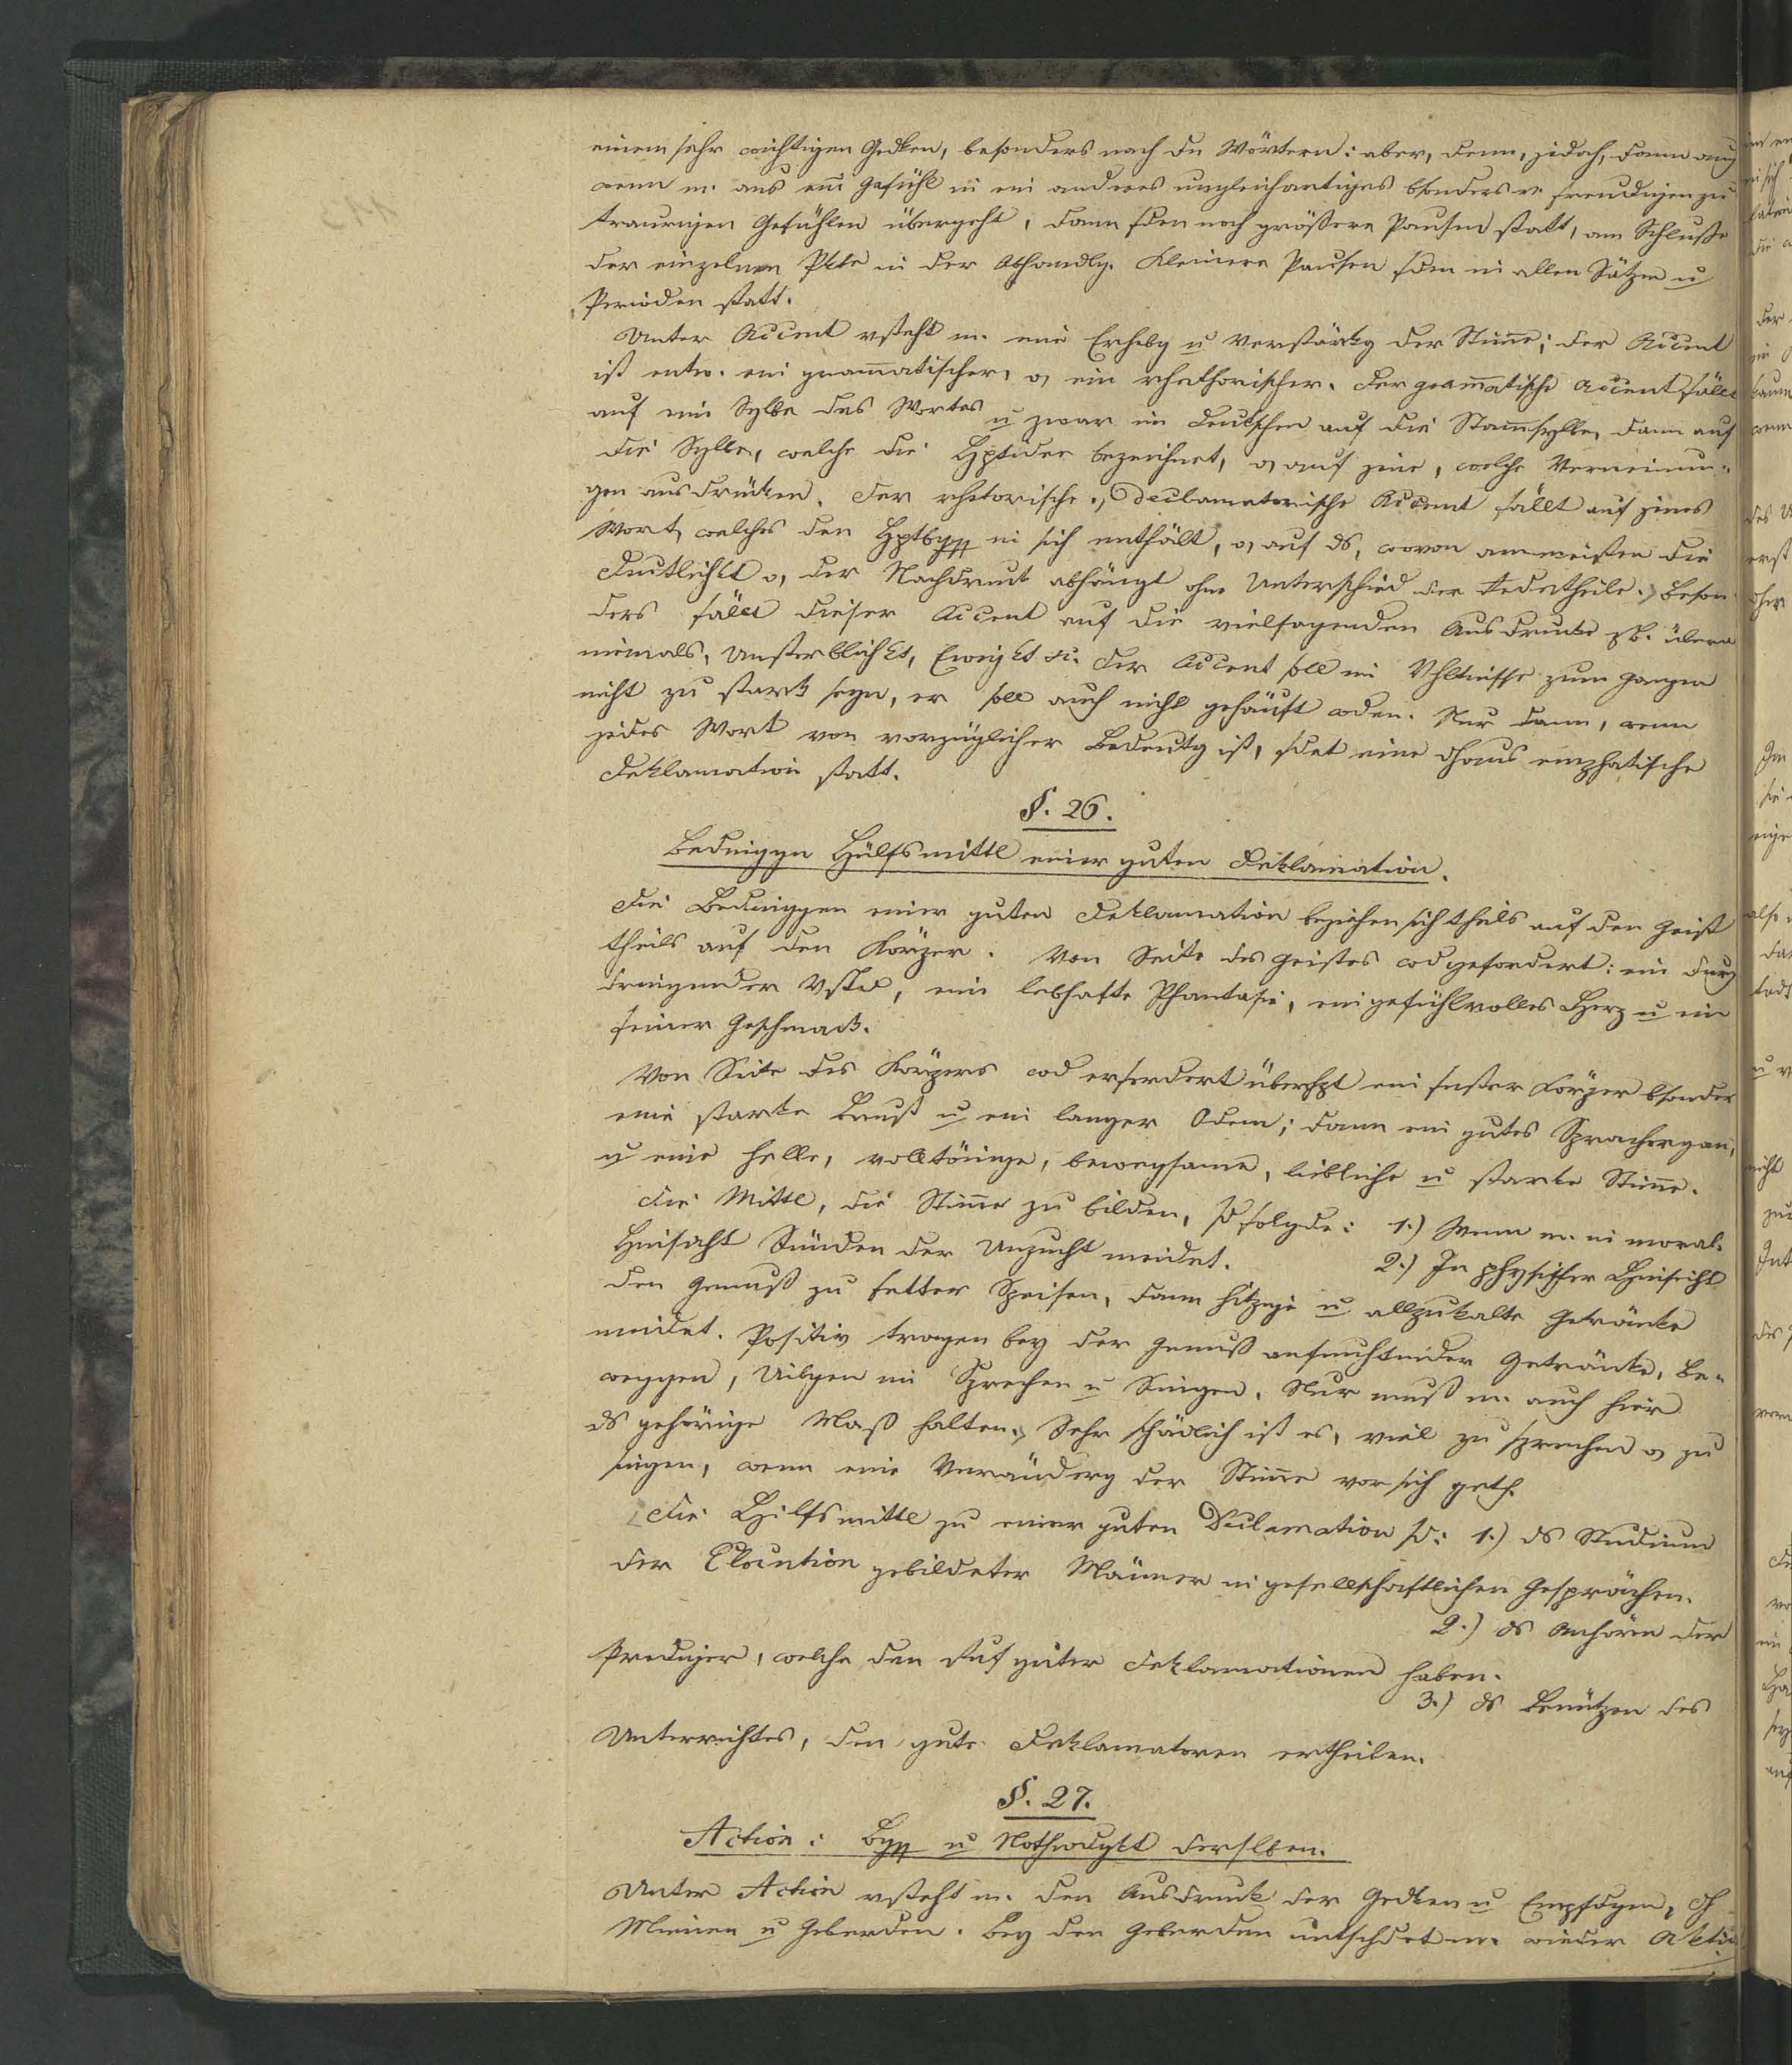 einem sehr wichtigen Gedken, besonders nach dn Wörtern: aber, denn, jedoch, dann auch
wenn m. aus em Gefühl in ein anderes ungleichartiges bsonders v. freudigen zu
traurigen Gefühlen übergeht, dann fden noch größere Pausen statt, am Schluße
der einzelnen Pkte in der Abhandlg. Kleinere Pausen fden in allen Sätzen u
Perioden statt.
Unter Accent vsteht m. eine Erhebg u Verstärkg der Stimme; der Accent
ist entw. ein grammatischer, o, ein rhethorischer. Der grammatische Accent fällt
auf eine Sylbe des Wortes u zwar im Deutschen auf die Stammsylbe, dann auf
die Sylbe, welche die Hptidee bezeichnet, o, auf jene, welche Verneinun-
gen ausdrücken. Der rhetorische o, declamatorische Accent fällt auf jenes
Wort, welches den Hptbgff in sich enthält, o, auf ds, wovon am meisten die
Deutlichkt o, der Nachdruck abhängt ohne Unterschied der Redetheile. Beson
ders fällt dieser Accent auf die vielsagenden Ausdrucke zb. überall
niemals, Unsterblichkt, Ewigkt etc. Der Accent soll im Vhltnisse zum Ganzen
nicht zu stark seyn, er soll auch nicht gehäuft wden. Nur dann, wenn
jedes Wort von vorzüglicher Bedeutg ist, fdet eine dhaus emphatische
Deklamation statt.
§. 26.
Bedniggn Hülfsmittl einer guten Deklamation.
Die Bedniggen einer guten Deklamation beziehen sich theils auf den Geist
theils auf den Körper. Von Seite des Geistes wd gefordert: ein durch
dringender Vstd, eine lebhafte Phantasie, ein gefühlvolles Herz u ein
feiner Geschmack.
Von Seite des Körpers wd erfordert überhpt ein fester Körper bsonders
eine starke Brust u ein langer Odem; dann ein gutes Sprachorgan,
u eine helle, volltönige, bewegsame, liebliche u starke Stimme.
Die Mittl, die Stimme zu bilden, sd folgde: 1.) Wenn m. in moral.
Hinsicht Sünden der Unzucht meidet. 2.) In physischer Hinsicht
den Genuß zu fetter Speisen, dann hitzige u allzukalte Getränke
meidet. Positiv tragen bey der Genuß anfeuchtender Getränke, Be-
weggen, Uibgen im Sprechen u Singen. Nur muß m. auch hier
ds gehörige Maß halten. Sehr schädlich ist es, viel zu sprechen o, zu
singen, wenn eine Veränderg der Stimme vor sich geth.
Die Hilfsmittl zu einer guten Declamation sd: 1.) ds Studium
der Elocution gebildeter Männer in gesellschaftlichen Gesprächen.
2.) ds Anhören der
Prediger, welche den Ruf guter Deklamationen haben.
3.) ds Benützen des
Unterrichtes, den gute Deklamatoren ertheilen.
§. 27.
Action: Bgff u Nothwdgkt derslben.
Unter Action vsteht m. den Ausdruck der Gedken u Empfdgen, dh
Mienen u Geberden. Bey den Geberden untschdet m. wieder Aktio